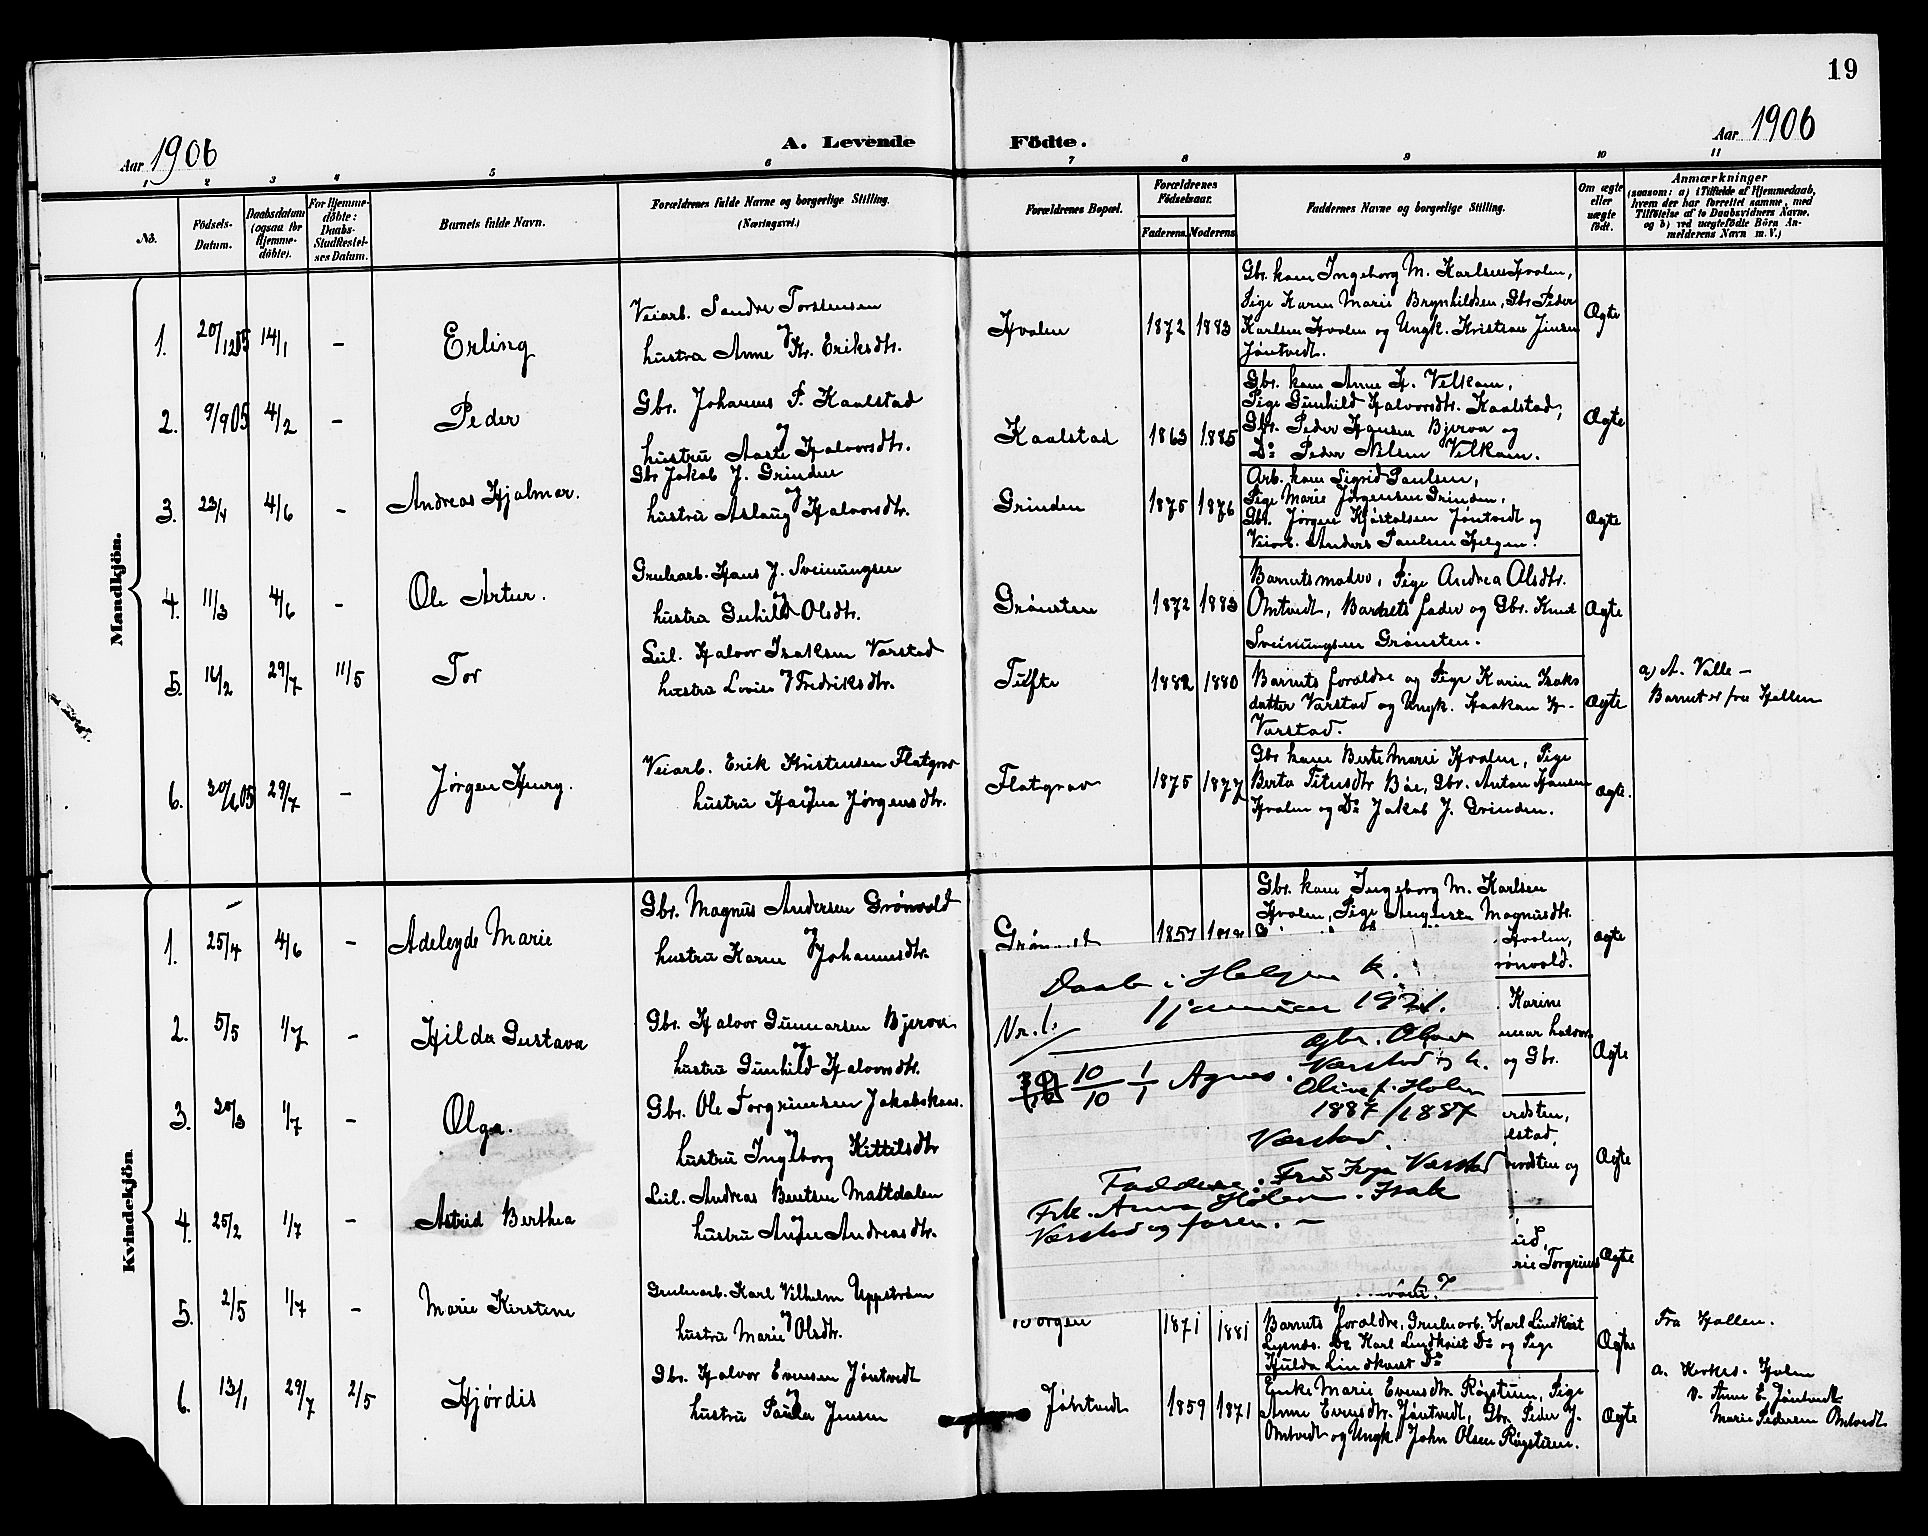 19
Aar 1906
A. Levende Födte.
Aar 1906
1 2 3 4 5 6 7 8 9 10 11
No.
Födsels-Datum.
Daabsdatum (ogsaa for Hjemme-döbte).
For Hjemme-döbte: Daabs-Stadfestel-ses Datum.
Barnets fulde Navn.
Forældrenes fulde Navne og borgerlige Stilling.
(Næringsvei.)
Forældrenes Bopæl.
Forældrenes Födselsaar.
Faderens. Moderens.
Faddernes Navne og borgerlige Stilling.
Om ægte eller uægte födt.
Anmærkninger
(saasom: a) i Tilfælde af Hjemmedaab,
hvem der har forrettet samme, med
Tilföielse af to Daabsvidners Navne,
og b) ved uægtefödte Börn An-
melderens Navn m. V.)
Mandkjön.
1. 20/12 05 14/1 - Erling
Veiarb. Sondre Torstensen
og
hustru Anne Kr. Eriksdtr.
Hvalen 1872 1883
Gbr. kone Ingeborg M. Karlsen Hvalen,
Pige Karen Marie Brynhildsen, Gbr. Peder
Karlsen Hvalen og Ungk. Kristian Jensen
Jøntvedt.
Ægte
2. 9/9 05 4/2 - Peder
Gbr. Johannes P. Kaalstad
og
hustru Aaste Halvorsdtr.
Kaalstad 1863 1885
Gbr. kone Anne H. Velkam,
Pige Gunhild Halvorsdtr. Kaalstad,
Gbr. Peder Hansen Bjerva og
Do Peder Nilsen Velkam.
Ægte
3. 23/4 4/6 - Andreas Hjalmar.
Gbr Jakob J. Grinden
og
hustru Aslaug Halvorsdtr.
Grinden 1875 1876
Arb. kone Sigrid Paulsen,
Pige Marie Jørgensen Grinden,
Gbr. Jørgen Kjøstolsen Jøntvedt og
Veiarb. Anders Paulsen Helgen.
Ægte
4. 11/3 4/6 - Ole Artur.
Grubearb. Hans J. Sveinungsen
og
hustru Guhild Olsdtr.
Grønsten 1872 1883
Barnets moder, Pige Andrea Olsdtr.
Omtvedt, Barnets fader og Gbr. Knud
Sveinungsen Grønsten.
Ægte
5. 16/2 29/7 11/5 Tor
Leil. Halvor Isaksen Varstad
og
hustru Lovise Fredriksdtr.
Tufte 1882 1880
Barnets foreldre og Pige Karin Isaks
datter Varstad og Ungk. Haakon H-
Varstad.
Ægte
a) A. Valle -
Barnet er fra Hollen
6. 30/6 05 29/7 - Jørgen Henry.
Veiarb. Erik Kristensen Flatgrav
og
hustru Hanna Jørgensdtr.
Flatgrav 1875 1877
Gbr kone Berte Marie Hvalen, Pige
Berta Petersdtr Bøe, Gbr. Anton Hansen
Hvalen og Do Jakob J. Grinden.
Ægte.
Kvindekjön.
1. 25/4 4/6 - Adeleyde Marie
Gbr. Magnus Andersen Grønvold
og
hustru Karen Johannesdtr.
1857
Gbr. kone Ingeborg M. Karlsen
Hvalen, Pige Augusta Magnusdtr.
Hvalen,
rønvold.
Ægte
2. 5/5 1/7 - Hilda Gustava
Gbr. Halvor Gunnarsen Bjerva
og
hustru Gunhild Halvorsdtr.
Karine
og Gbr.
Ægte
3. 20/3 1/7 - Olga.
Gbr. Ole Torgrimsen Jakobskaas.
og
hustru Ingeborg Kittilsdtr
Ægte
4. 25/2 1/7 - Astrid Berthea
Leil. Andreas Bentsen Mattdalen
og
hustru Anne Andreasdtr.
Ægte
5. 2/5 1/7 - Marie Kirstine
Grubearb. Karl Vilhelm Uppström
og
hustru Marie Olsdtr.
Borgen 1871 1881
Barnets foreldre, Grubearb. Karl Lindkvist
Do Karl Lindkvist Do og Pige
Hulda Lindkvist Do
Ægte
Fra Hollen.
6. 13/1 29/7 2/5 Hjørdis
Gbr. Halvor Evensen Jøntvedt
og
hustru Paula Jensen
Jøntvedt 1859 1871
Enke Marie Evensdtr. Røgstuen, Pige
Anne Evensdtr. Jøntvedt, Gbr. Peder J.
Omtvedt og Ungk. John Olsen Røgstuen.
Ægte
a. Kirkes. Holm
v. Anne E. Jøntvedt
Marie Pedersen Omtvedt
Daab i Helgen k.
1 januar 1921.
Nr. 1.
10/10 1/1 Agnes.
gbr. Olav
Værstad og h.
Oline f. Holm
1887/1887
Værstad.
Faddere. Fru Inga Værstad
Frk. Anna Holm. Isak
Værstad og faren. -